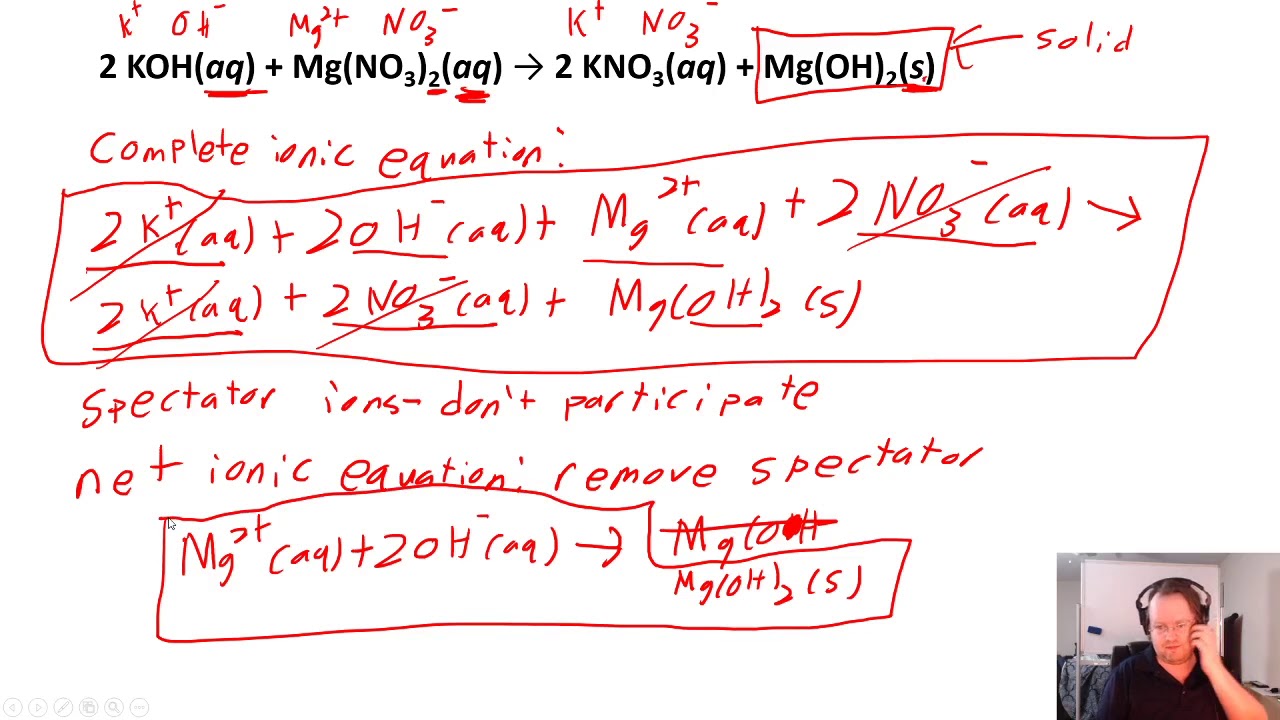 K⁺ OH⁻ Mg²⁺ NO₃⁻ K⁺ NO₃⁻
2 KOH(aq) + Mg(NO₃)₂(aq) → 2 KNO₃(aq) + Mg(OH)₂(s) ← solid
Complete ionic equation:
2K⁺(aq) + 2OH⁻(aq) + Mg²⁺(aq) + 2NO₃⁻(aq) →
2K⁺(aq) + 2NO₃⁻(aq) + Mg(OH)₂(s)
Spectator ions- don't participate
net ionic equation: remove spectator
Mg²⁺(aq) + 2OH⁻(aq) → Mg(OH
Mg(OH)₂(s)